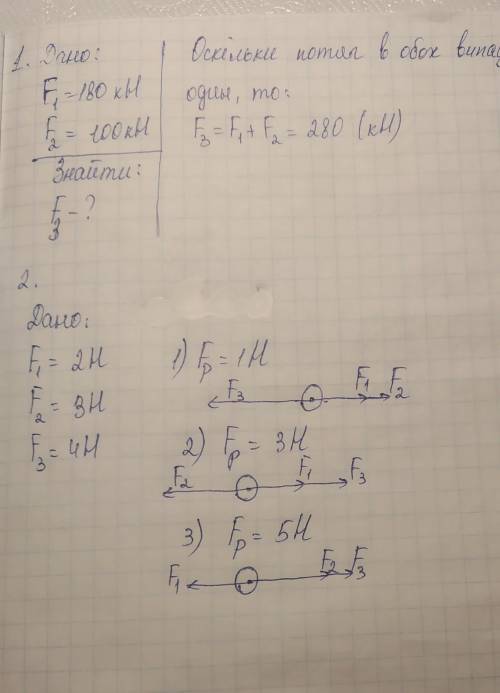 1. Дано:
F₁ = 180 кН
F₂ = 100кН
Знайти:
F₃ - ?
Оскільки потяг в обох
один, то:
F₃ = F₁ + F₂ = 280 (кН)
2.
Дано:
F₁ = 2Н
F₂ = 3Н
F₃ = 4Н
1) Fр = 1Н
F₃ F₁ F₂
2) Fр = 3Н
F₂ F₁ F₃
3) Fр = 5Н
F₁ F₂ F₃